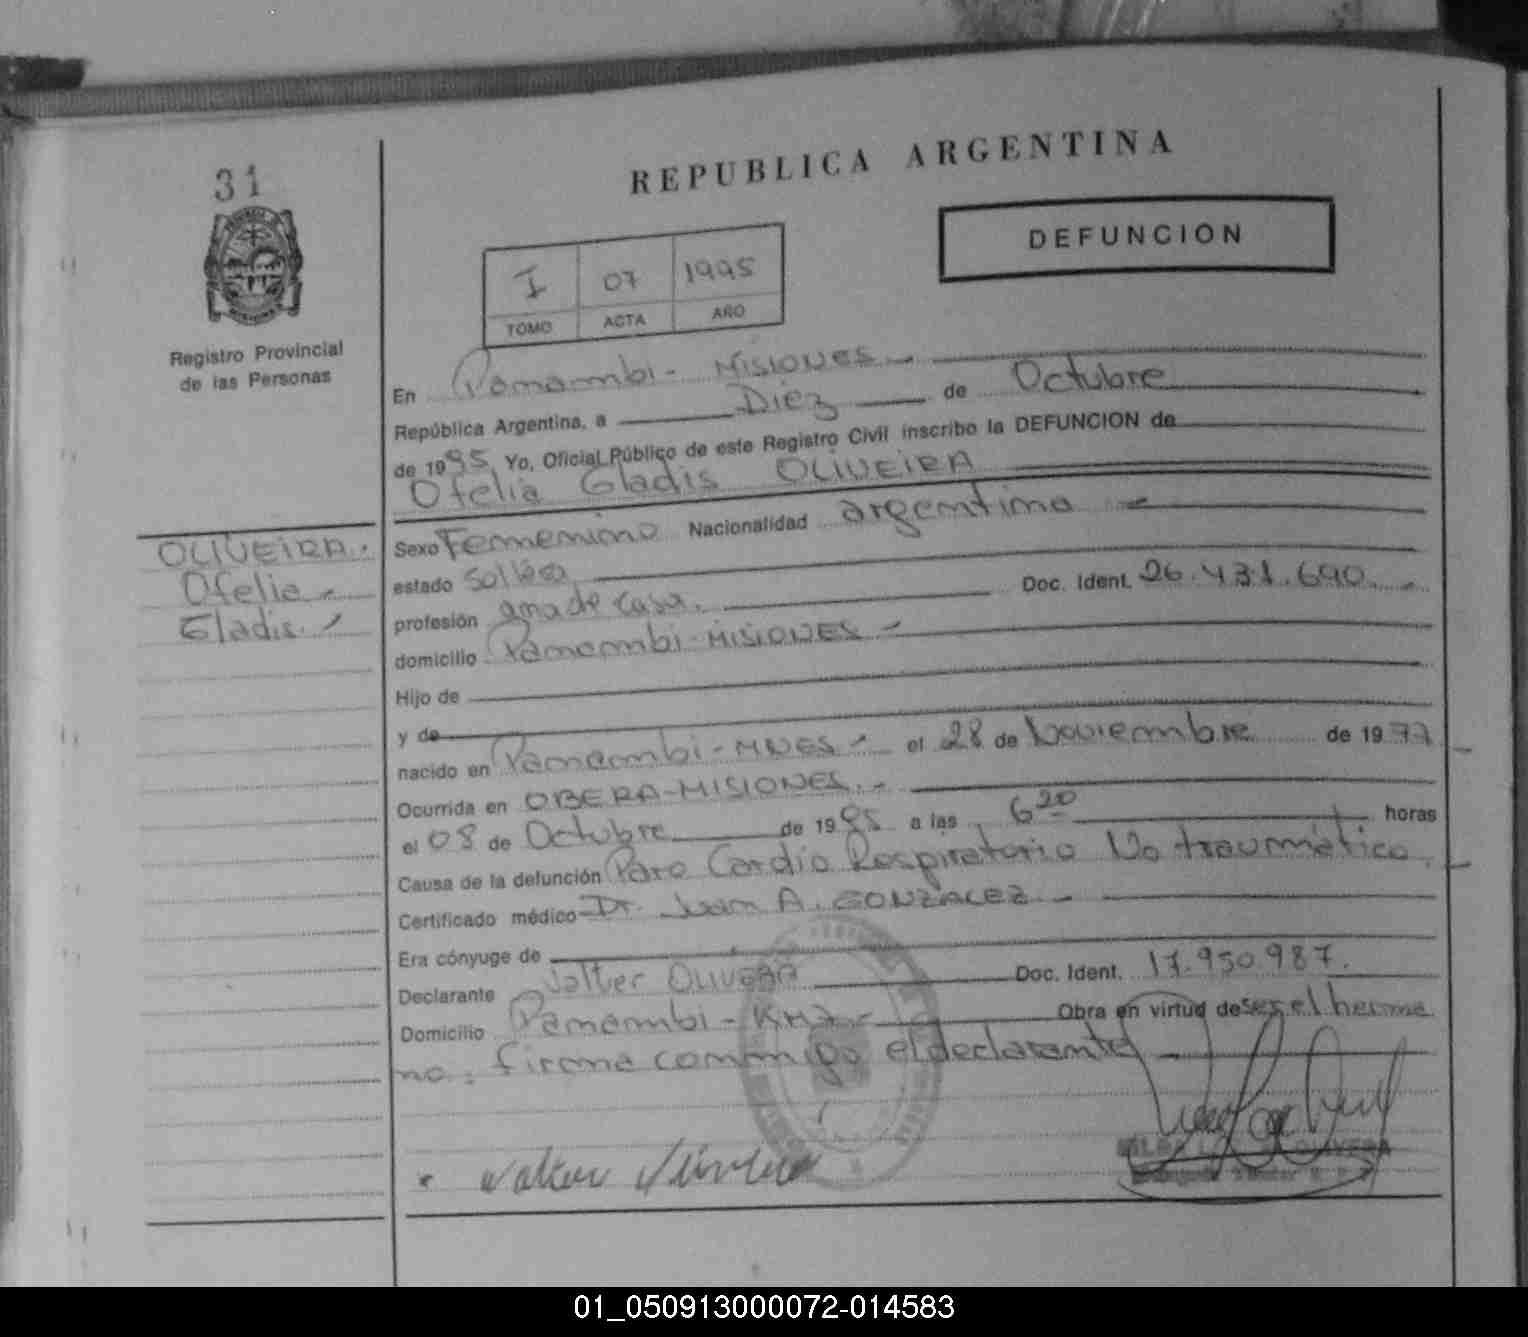 31
REPUBLICA ARGENTINA
DEFUNCION
I 07 1995
TOMO ACTA AÑO
Registro Provincial
de las Personas
En Panambi - MISIONES
República Argentina, a Diez de Octubre
de 1995, Yo, Oficial Público de este Registro Civil inscribo la DEFUNCION de
Ofelia Gladis OLIVEIRA
OLIVEIRA.
Ofelia
Gladis.
Sexo Femenino Nacionalidad argentina
estado Soltera
profesión ama de casa. Doc. Ident. 26.431.690
domicilio Panambi - MISIONES
Hijo de
y de
nacido en Panambi - MNES el 28 de Noviembre de 1977
Ocurrida en OBERA - MISIONES.
el 08 de Octubre de 1995 a las 6 20 horas
Causa de la defunción Paro Cardio Respiratorio No traumático.
Certificado médico Dr. Juan A. GONZALEZ
Era cónyuge de
Declarante Walter OLIVERA Doc. Ident. 17.950.987.
Domicilio Panambi - KM7 Obra en virtud de ser el herma
no. firma conmigo el declarante
Walter
OLIVERA
01_050913000072-014583